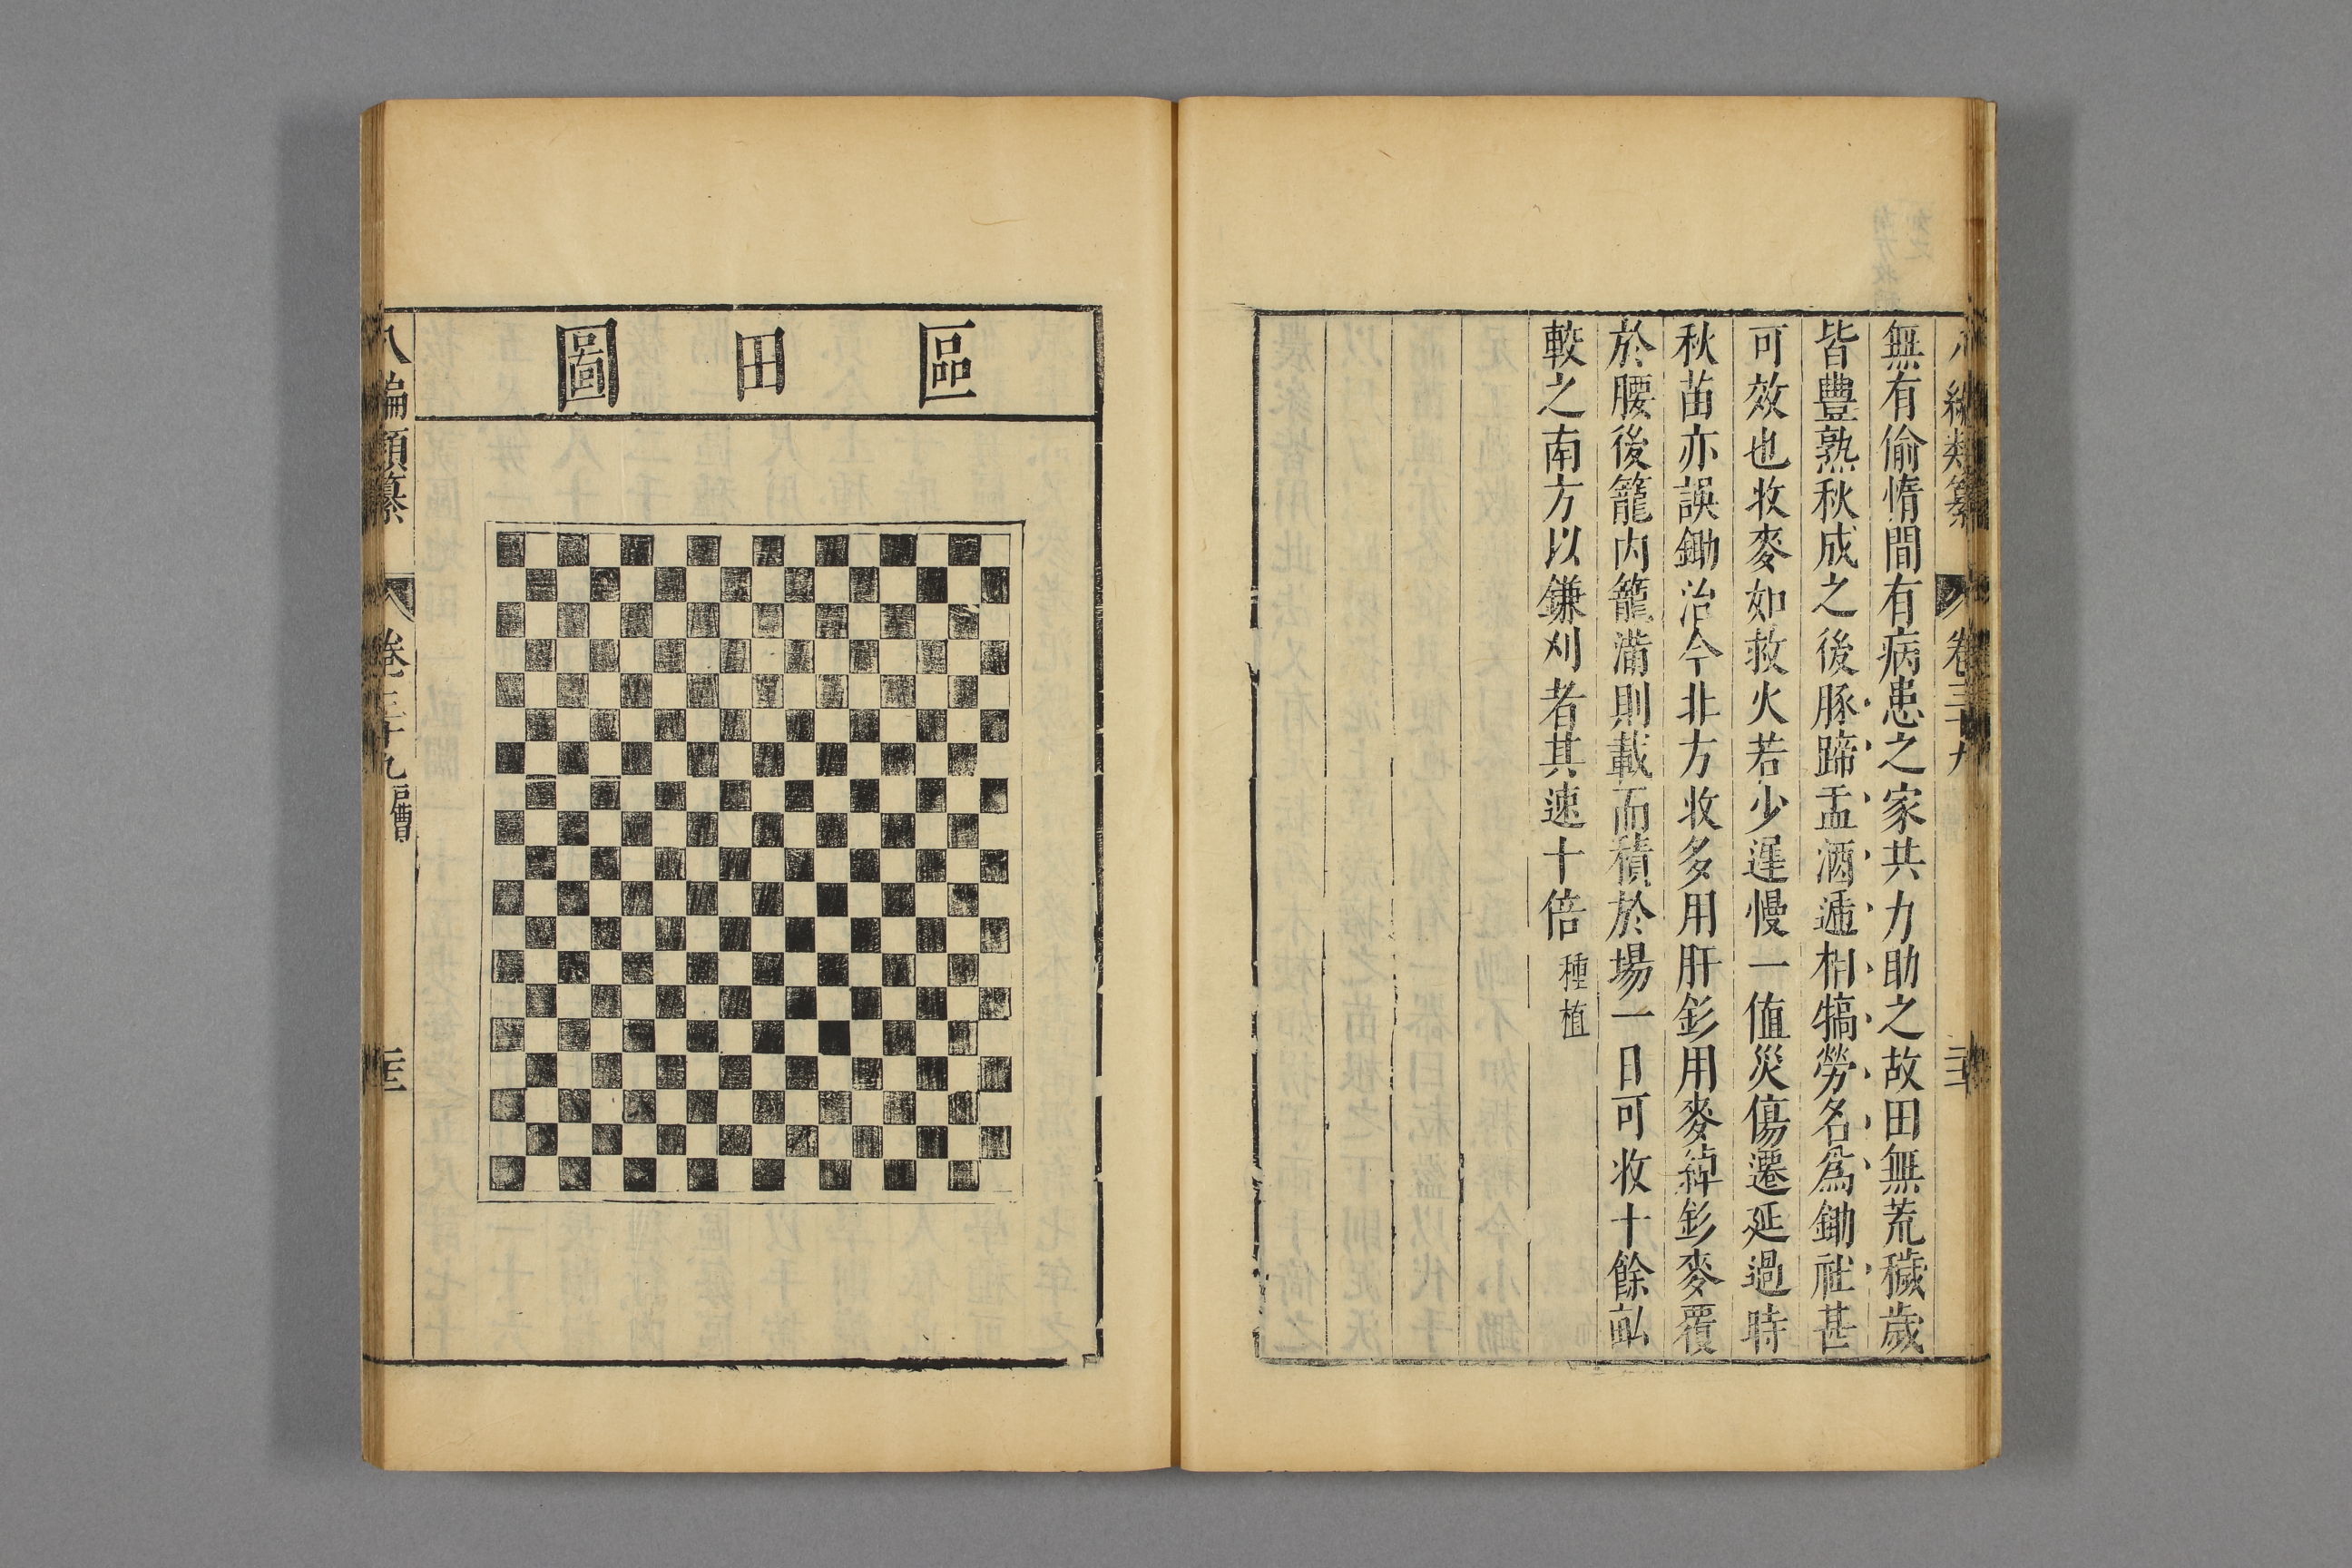 無有偷惰間有病患之家共力助之故田無荒穢歲
皆豐熟秋成之後豚蹄盂酒遞相犒勞名爲鋤社甚
可效也收麥如救火若少遲慢一值災傷遷延過時
秋苗亦誤鋤治今非方收多用肝釤用麥綽釤麥覆
於腰後籠内籠滿則載而積於場一日可收十餘畆
較之南方以鎌刈者其速十倍
種植
區田圖
八編類纂
卷三十九